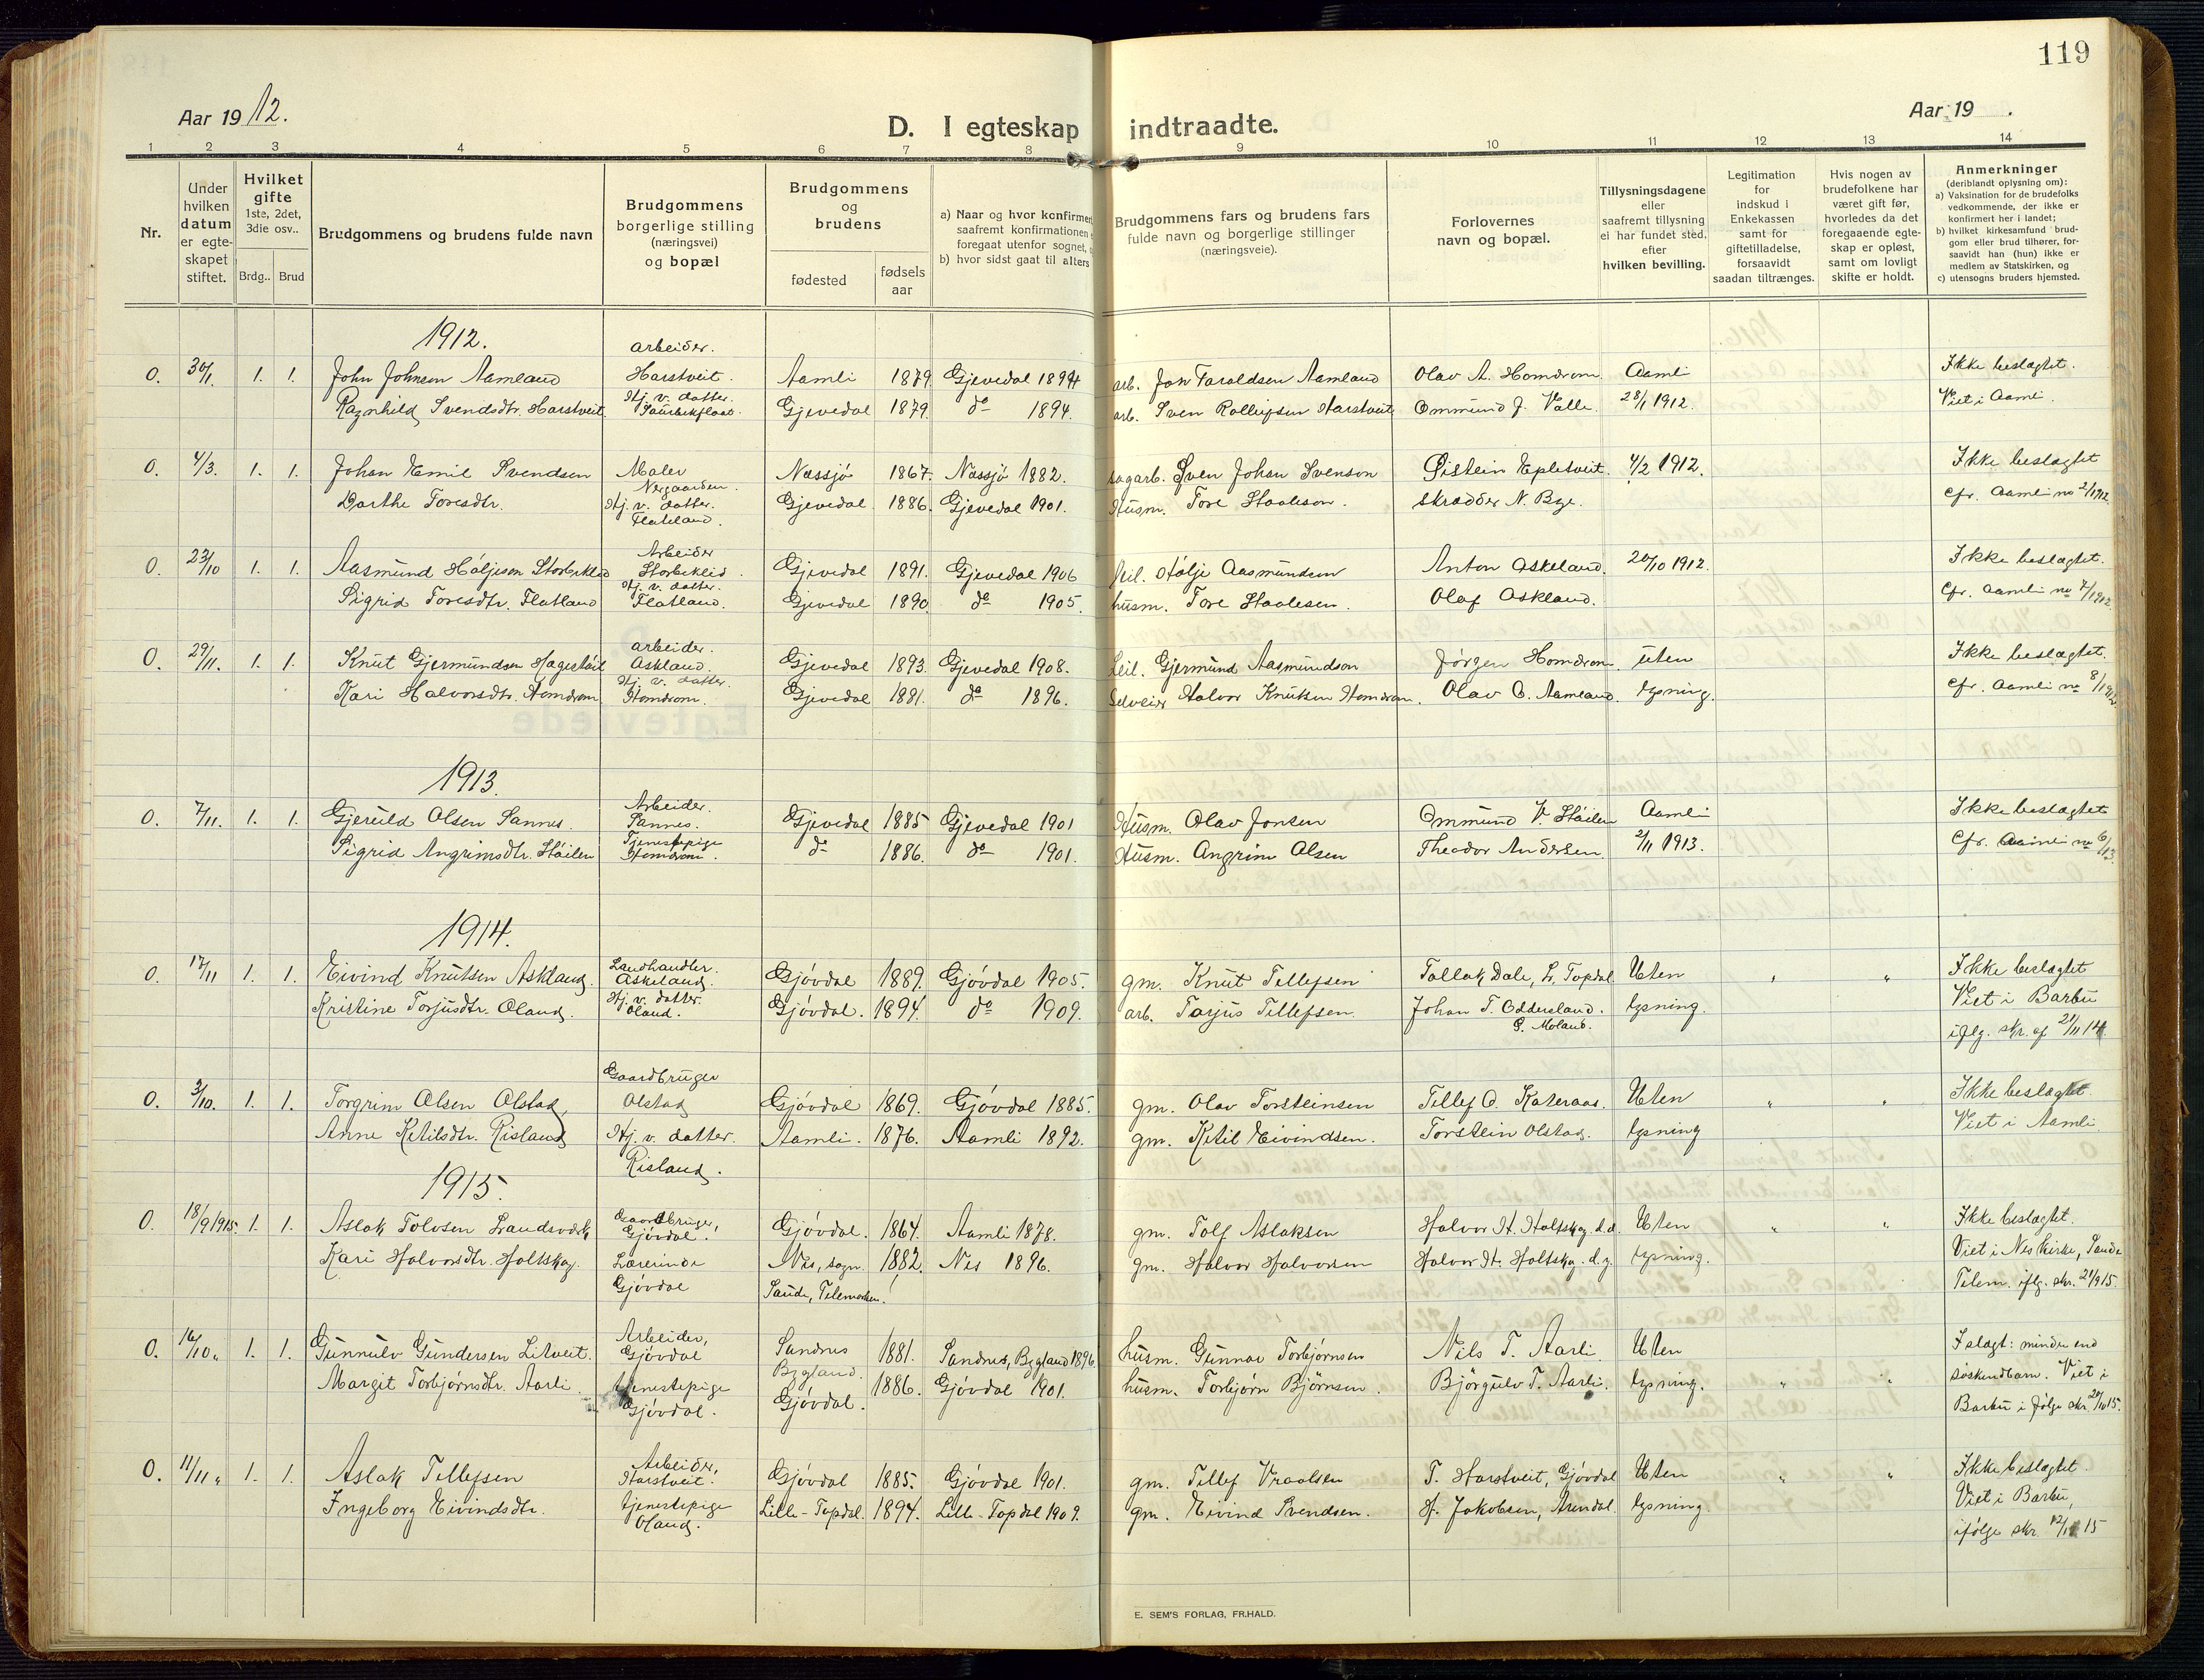 119
Aar 1912.
D. I egteskap indtraadte.
Aar 19 .
1 2 3 4 5 6 7 8 9 10 11 12 13 14
Nr.
Under hvilken datum er egte-skapet stiftet.
Hvilket gifte 1ste, 2det, 3die osv..
Brdg.. Brud
Brudgommens og brudens fulde navn
Brudgommens borgerlige stilling (næringsvei) og bopæl
Brudgommens og brudens
fødested
fødsels aar
a) Naar og hvor konfirmer
saafremt konfirmationen
foregaat utenfor sognet,
b) hvor sidst gaat til alters
Brudgommens fars og brudens fars
fulde navn og borgerlige stillinger
(næringsveie).
Forlovernes
navn og bopæl.
Tillysningsdagene
eller
saafremt tillysning
ei har fundet sted,
efter
hvilken bevilling.
Legitimation
for
indskud i
Enkekassen
samt for
giftetilladelse,
forsaavidt
saadan tiltrænges.
Hvis nogen av
brudefolkene har
været gift før,
hvorledes da det
foregaaende egte-
skap er opløst,
samt om lovligt
skifte er holdt.
Anmerkninger
(deriblandt oplysning om):
a) Vaksination for de brudefolks
vedkommende, der ikke er
konfirmert her i landet;
b) hvilket kirkesamfund brud-
gom eller brud tilhører, for-
saavidt han (hun) ikke er
medlem av Statskirken, og
c) utensogns bruders hjemsted.
1912.
arbeider.
0. 30/1. 1. 1. John Johnsen Aamland Harstveit. Aamli 1879 Gjevedal 1894 arb. Jon Taraldsen Aamland Olav A. Homdrom Aamli Ikke beslægtet.
Hj. v. datter.
Ragnhild Svendsdtr. Harstveit Gjevedal 1879. do 1894. arb. Sven Rollefsen Harstveit Ommund J. Valle 28/1 1912. Viet i Aamli.
0. 4/3. 1. 1. Johan Emil Svendsen Maler Nassjö 1867. Nassjö 1882. sagarb. Sven Johan Svenson Øistein Epletveit. 4/2 1912. Ikke beslægtet
Nergaarden.
Barthe Toresdtr. Hj. v. datter. Gjevedal 1886. Gjevedal 1901. Husm. Tore Staalesen. skrædder N. Bge. Cfr. Aamli no 2/1912.
Flateland.
Arbeider
0. 23/10 1. 1. Aasmund Höljesen Storbeklid Storbeklid. Gjevedal 1891. Gjevedal 1906 leil. Hölje Aasmundsen Anton Askeland. 20/10 1912. Ikke beslægtet.
Hj. v. datter.
Sigrid Toresdtr. Flatland Flatland. Gjevedal 1890 do 1905. husm. Tore Staalesen. Olaf Askland. Cfr. Aamli no 7/1912.
arbeider.
0. 29/11. 1. 1. Knut Gjermundsen Hagestveit Askland. Gjevedal 1893. Gjevedal 1908. Leil. Gjermund Aasmundson Jörgen Homdrom uten Ikke beslægtet.
Hj. v. datter.
Kari Halvorsdtr. Homdrom Homdrom. Gjevedal 1881. do 1896. Selveier Halvor Knutsen Homdrom. Olav O. Aamland. lysning. Cfr. Aamli no 8/1912.
1913.
Arbeider.
0. 7/11. 1. 1. Gjeruld Olsen Sannes. Sannes. Gjevedal 1885 Gjevedal 1901 Husm. Olav Jonsen Ommund V. Stöilen Aamli Ikke beslægtet
Tjenestepige
Sigrid Angrimsdtr. Stöilen Homdrom. do 1886. do 1901. Husm. Angrim Olsen Theodor Andersen. 2/11 1913. Cfr. Aamli no 6/13.
1914.
Landhandler.
0. 17/11 1. 1. Eivind Knutsen Askland. Askeland. Gjövdal 1889. Gjövdal 1905. gm. Knut Tellefsen Tallak Dale, L. Topdal Uten Ikke beslægtet
Hj. v. datter.
Kristine Torjusdtr. Oland. Oland. Gjövdal. 1894. do 1909. arb. Tarjus Tellefsen. Johan T. Oddersland. lysning. Viet i Barbu
Ö. Moland. iflg. skr. af 21/11 14.
Gaardbruger
0. 3/10. 1. 1. Torgrim Olsen Olstad, Olstad Gjövdal 1869. Gjövdal 1885. gm. Olav Torsteinsen Tellef O. Kateraas. Uten Ikke beslægtet.
Anne Ketilsdtr. Risland Hj. v. datter. Aamli. 1876. Aamli 1892. gm. Ketil Eivindsen. Torstein Olstad. lysning Viet i Aamli
Risland.
1915.
Gaardbruger,
0. 18/9 1915. 1. 1. Aslak Tolvsen Landsverk Gjövdal. Gjövdal. 1864. Aamli 1878. gm. Tolf Aslaksen Halvor H. Holtskog d.æ. Uten Ikke beslægtet.
Kari Halvorsdtr. Holtskog. Lærerinde Nes, sogn. 1882. Nes 1896. gm. Halvor Halvorsen Halvor H. Holtskog. d.y. lysning. Viet i Nes kirke, Saude
Gjövdal Saude, Telemarken. Telem. iflg. skr. 21/9 15.
Arbeider,
0. 16/10 " 1. 1. Gunnulv Gundersen Litveit. Gjövdal Sandnes 1881. Sandnes, Bygland 1896 husm. Gunnar Torbjörnsen Nils T. Aarli. Uten I slægt: mindre end
Bygland.
Margit Torbjörnsdtr. Aarli. tjenestepige 1886. Gjövdal 1901. husm. Torbjörn Björnsen. Björgulv T. Aarli. lysning. söskendbarn. Viet i
Gjövdal. Gjövdal. Barbu i fölge skr. 20/10 15.
Arbeider,
0. 11/11 " 1. 1. Aslak Tellefsen Harstveit. Gjövdal 1885. Gjövdal 1901. gm. Tellef Vraalsen T. Harstveit, Gjövdal Uten Ikke beslægtet.
Ingeborg Eivindsdtr. tjenestepige Lille-Topdal. 1894. Lille-Topdal 1909. gm. Eivind Svendsen. H. Jakobsen, Arendal. lysning. Viet i Barbu,
Oland. ifölge skr. 12/11 15
E. SEM'S FORLAG, FR.HALD.